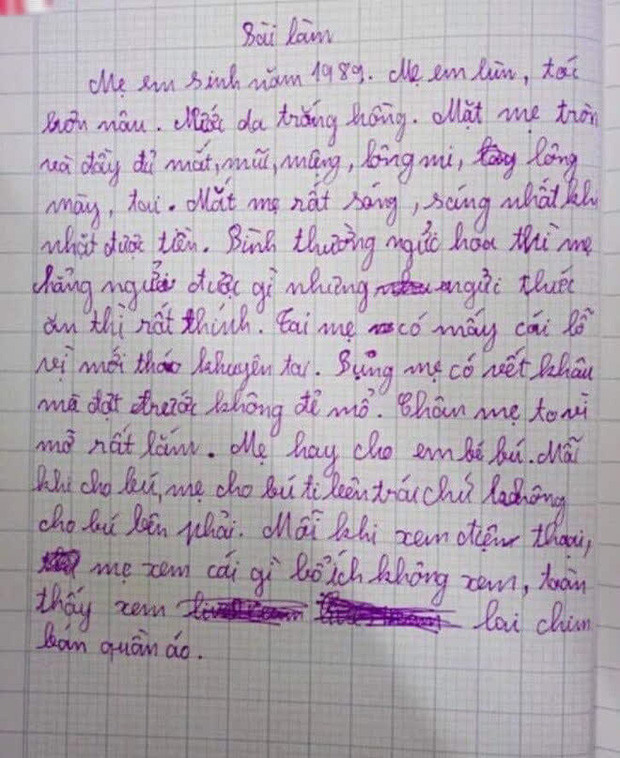 Bài làm
Mẹ em sinh năm 1989. Mẹ em lùn, tóc
hơn nâu. Nước da trắng hồng. Mặt mẹ tròn
và đầy đủ mắt, mũi, mệng, lông mi, lông
mày, tai. Mắt mẹ rất sáng, sáng nhất kh
nhặt được tiền. Bình thường ngửi hoa thì mẹ
chẳng ngửi được gì nhưng ngửi thức
ăn thì rất thính. Tai mẹ có mấy cái lỗ
vì mới tháo khuyên tai. Bụng mẹ có vết khâu
mà đợt trước không đẻ mổ. Chân mẹ to vì
mỡ rất lắm. Mẹ hay cho em bé bú. Mỗi
khi cho bú, mẹ cho bú ti bên trái chứ không
cho bú bên phải. Mỗi khi xem điện thoại,
mẹ xem cái gì bổ ích không xem, toàn
thấy xem lai chim
bán quần áo.